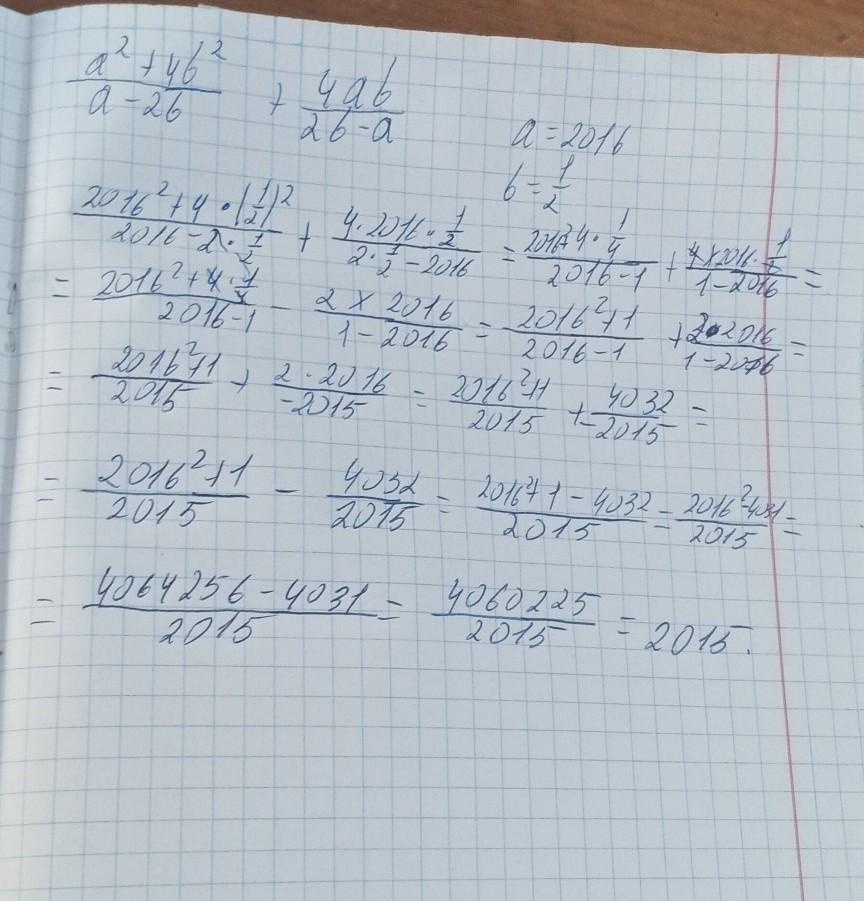 a² + 4b² / a - 2b + 4ab / 2b - a
a = 2016
b = 1/2
2016² + 4 · (1/2)² / 2016 - 2 · 1/2 + 4 · 2016 · 1/2 / 2 · 1/2 - 2016 = 2016² + 4 · 1/4 / 2016 - 1 + 4 × 2016 · 1/2 / 1 - 2016 =
= 2016² + 4 · 1/4 / 2016 - 1 - 2 × 2016 / 1 - 2016 = 2016² + 1 / 2016 - 1 + 2 · 2016 / 1 - 2016 =
= 2016² + 1 / 2015 + 2 · 2016 / -2015 = 2016² + 1 / 2015 + 4032 / -2015 =
= 2016² + 1 / 2015 - 4032 / 2015 = 2016² + 1 - 4032 / 2015 = 2016² - 4031 / 2015 =
= 4064256 - 4031 / 2015 = 4060225 / 2015 = 2015.